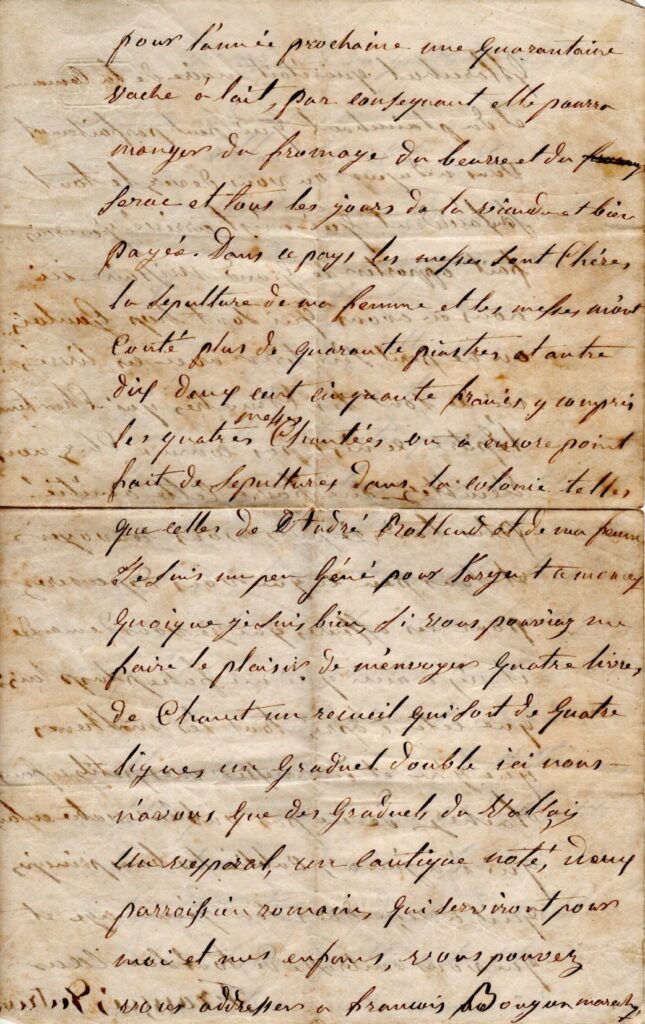 pour l'année prochaine une quarantaine
vache à lait, par conseqnant elle pourra
manger du fromage du beurre et du
serac et tous les jours de la viande et bien
payée. Dans ce pays les messes sont Chéres,
la sepulture de ma femme et les messes m'ont
Couté plus de quarante piastres et autre
dix deux cent cinquante francs, y compris
les quatres messes Chantées on a encore point
fait de sepultures dans la colonie telles
que celles de D'André et de ma femme
Je suis un peu Géné pour l'argent
Quoique je suis bien, Si vous pouviez me
faire le plaisir de m'envoyer Quatre livres,
de Chant un recueil qui soit de Quatre
lignes, un Graduel double ici nous
n'avons que des Graduels du Vallais
Un vesparal, un Cantique noté, deux
parroissien romain, qui serviront pour
moi et mes enfans, vous pouvez
vous addresser a francois Bongun